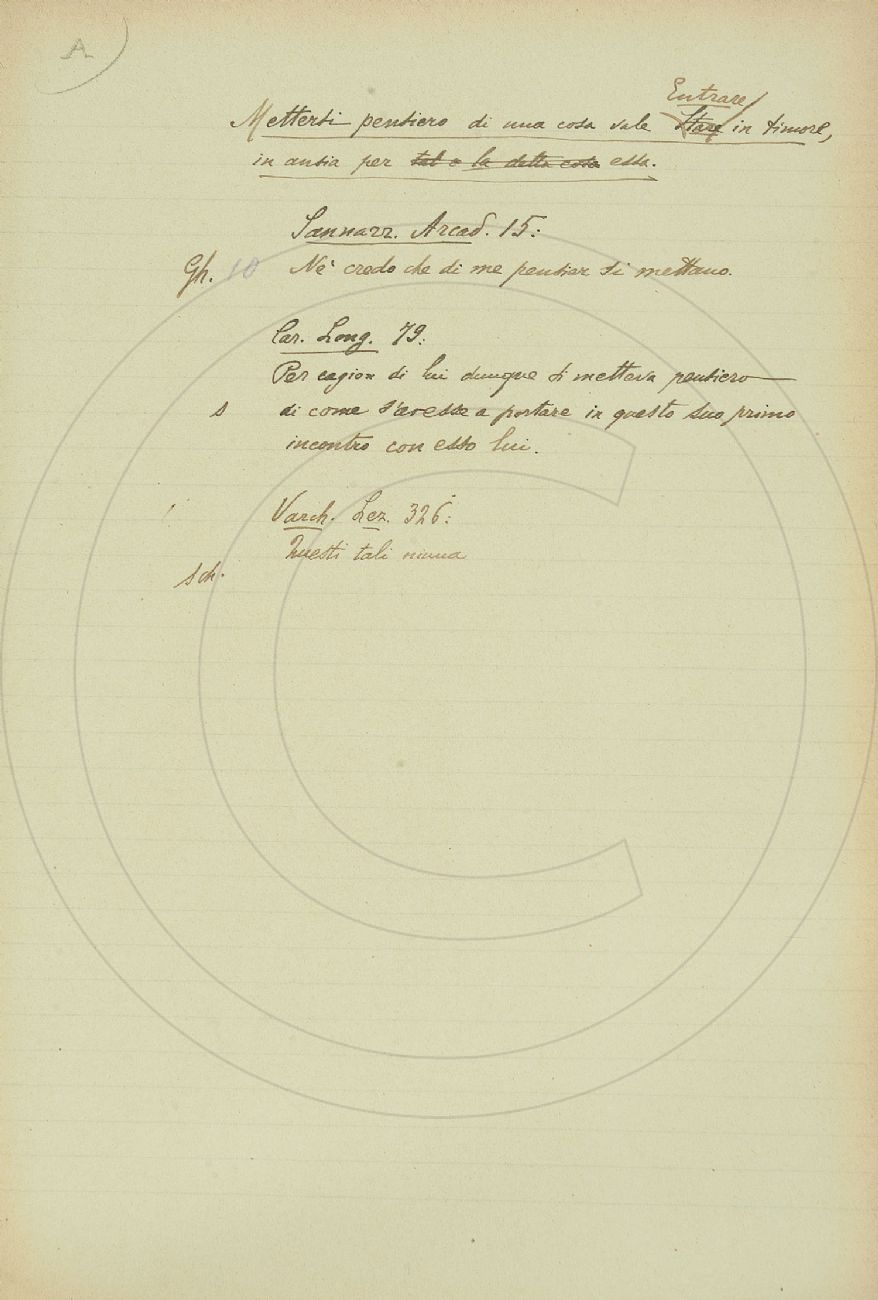 A
Entrare
Mettersi pensiero di una cosa vale Stare in timore,
in ansia per tal o la detta cosa essa.
Sannazz. Arcad. 15:
Gh. 10 Nè credo che di me pensier si mettano.
Car. Long. 79:
Per cagion di lui dunque si metteva pensiero
s di come s'avesse a portare in questo suo primo
incontro con esso lui.
Varch. Lez. 326:
Questi tali niuna
sch.